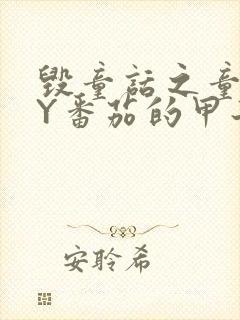 毁童话之童
Y番茄的甲
安聆希